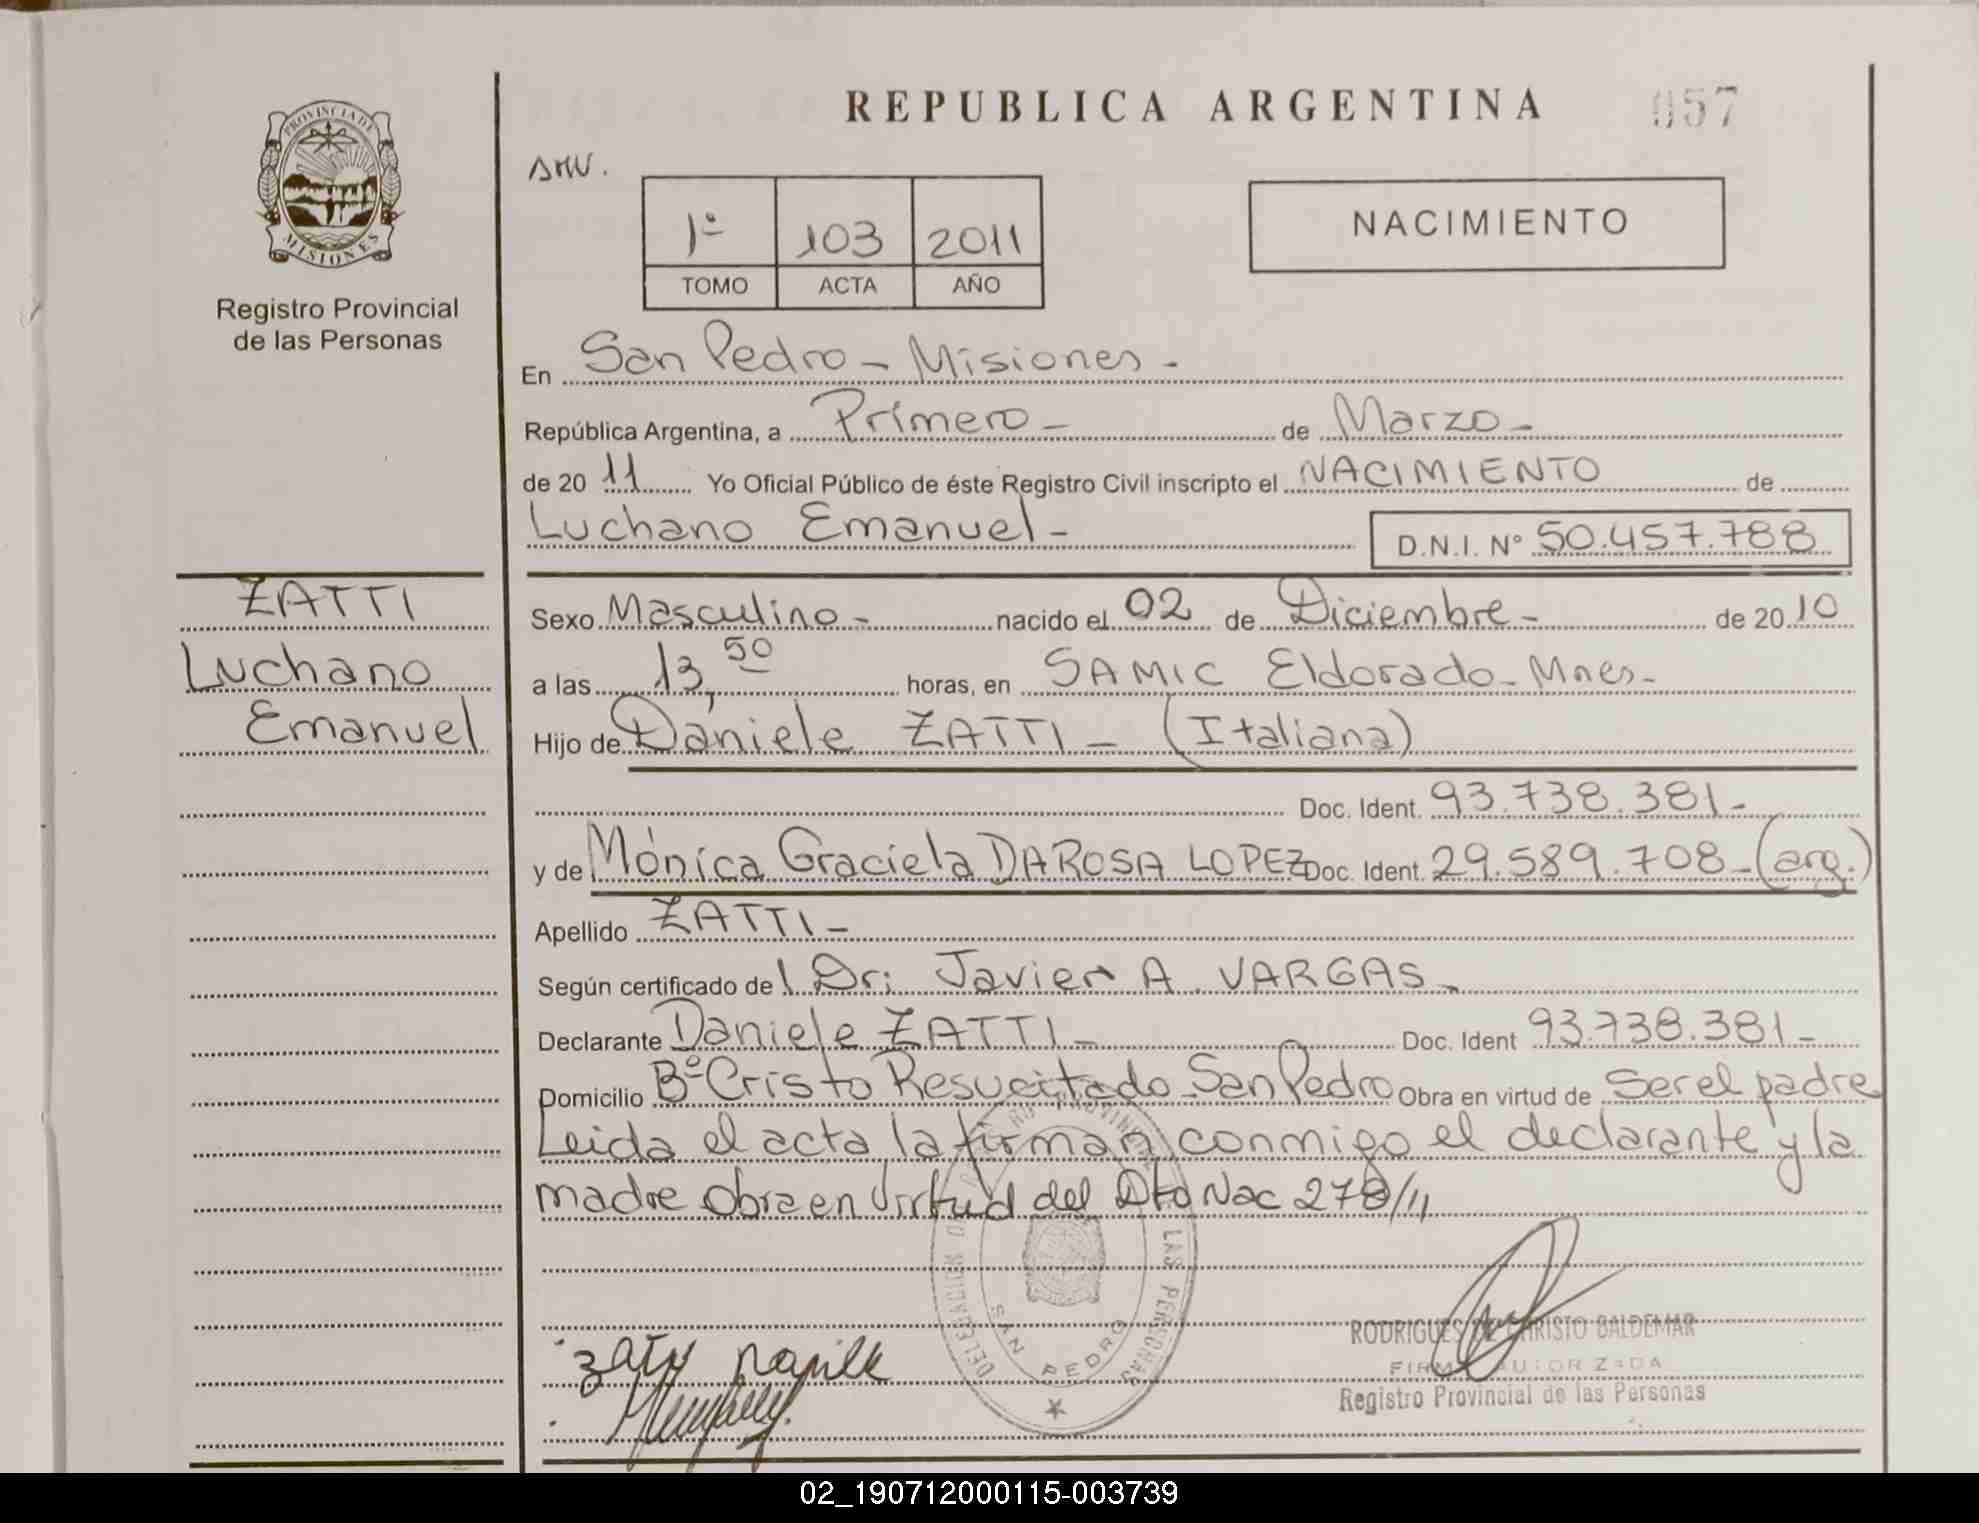 REPUBLICA ARGENTINA
957
PROVINCIA DE
MISIONES
Registro Provincial
de las Personas
1º 103 2011
TOMO ACTA AÑO
NACIMIENTO
En San Pedro - Misiones -
República Argentina, a Primero - de Marzo -
de 20 11 Yo Oficial Público de éste Registro Civil inscripto el NACIMIENTO de
Luchano Emanuel -
D.N.I. Nº 50.457.788
ZATTI
Luchano
Emanuel
Sexo Masculino - nacido el 02 de Diciembre - de 20 10
a las 13,50 horas, en SAMIC Eldorado - Mnes -
Hijo de Daniele ZATTI - (Italiana)
Doc. Ident. 93.738.381 -
y de Mónica Graciela DAROSA LOPEZ Doc. Ident. 29.589.708 - (arg.)
Apellido ZATTI -
Según certificado de l Dr: Javier A. VARGAS -
Declarante Daniele ZATTI - Doc. Ident 93.738.381 -
Domicilio Bº Cristo Resucitado - San Pedro Obra en virtud de Ser el padre
Leida el acta la firman conmigo el declarante y la
madre Obra en Virtud del Dto Nac 278/11
DELEGACION
LAS PERSONAS
SAN PEDRO
RODRIGUES DE CHRISTO BALDEMAR
FIRMA AUTORIZADA
Registro Provincial de las Personas
02_190712000115-003739